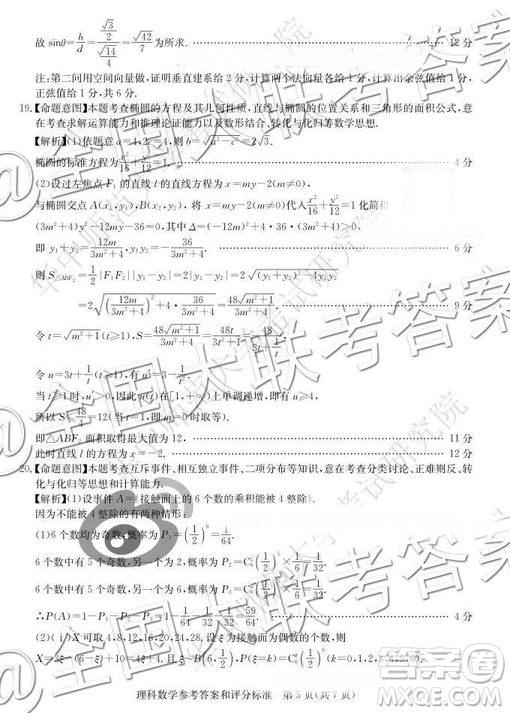 故 sinθ=h/d=(√3/2)/(√14/4)=√42/7为所求. 12 分
注:第二问用空间向量做,证明垂直建系给 2 分,计算两个法向量各给 1 分,计算出余弦值给 1 分,
正弦值给 1 分,共 6 分.
19.【命题意图】本题考查椭圆的方程及其几何性质,直线与椭圆的位置关系和三角形的面积公式,意
在考查求解运算能力和推理论证能力以及数形结合、转化与化归等数学思想.
【解析】(1)依题意 a=4,c=2,则 b=√(a²-c²)=2√3.
椭圆的标准方程为x²/16+y²/12=1. 4 分
(2)设过左焦点 F₁ 的直线 l 的直线方程为 x=my-2(m≠0),
与椭圆交点 A(x₁,y₁),B(x₂,y₂), 将 x=my-2(m≠0)代入x²/16+y²/12=1 化简得
(3m²+4)y²-12my-36=0,其中 Δ=(-12m)²+4·36(3m²+4)>0.
即 y₁+y₂=12m/(3m²+4),y₁y₂=-36/(3m²+4). 6 分
则 S△ABF₂=1/2|F₁F₂||y₁-y₂|=2|y₁-y₂|=2√((y₁+y₂)²-4y₁y₂)
=2√((12m/(3m²+4))²+4·36/(3m²+4))=48√(m²+1)/(3m²+4). 9 分
令 t=√(m²+1)(t≥1),S=48√(m²+1)/(3m²+4)=48t/(3t²+1)=48/(3t+1/t).
令 u=3t+1/t(t≥1),有 u′=3-1/t².
当 t≥1 时,u′>0,因此 u(t)在[1,+∞)上单调递增,即有 u≥4,
所以 S≤48/4=12(当 t=1,即 m=0时取等).
即△ABF₂ 面积取得最大值为 12, 11 分
此时直线 l 的方程为 x=-2. 12 分
20.【命题意图】本题考查互斥事件、相互独立事件、二项分布等知识,意在考查分类讨论、正难则反、转
化与化归等思想和计算能力.
【解析】(1)设事件 A={接触面上的 6 个数的乘积能被 4 整除}.
因为不能被 4 整除的有两种情形:
(1)6 个数均为奇数,概率为 P₁=(1/2)⁶=1/64.
6 个数中有 5 个奇数,另一个为 2,概率为 P₂=C
6 个数中有 5 个奇数,另一个为 6,概率为 P₃=C
∴P(A)=1-P₁-P₂-P₃=1-1/64-1/32-1/32=59/64. 4 分
(2)(ⅰ)X 可取 4,8,12,16,20,24,28,设 ξ 为接触面为偶数的个数,则
X=3ξ-(6-ξ)+10=4ξ+4,且 ξ~B(6,1/2),
理科数学参考答案和评分标准 第 5 页(共 7 页)
@全国大联考答案
@全国大联考答案
考试研究院
答案圈
MXQE.COM